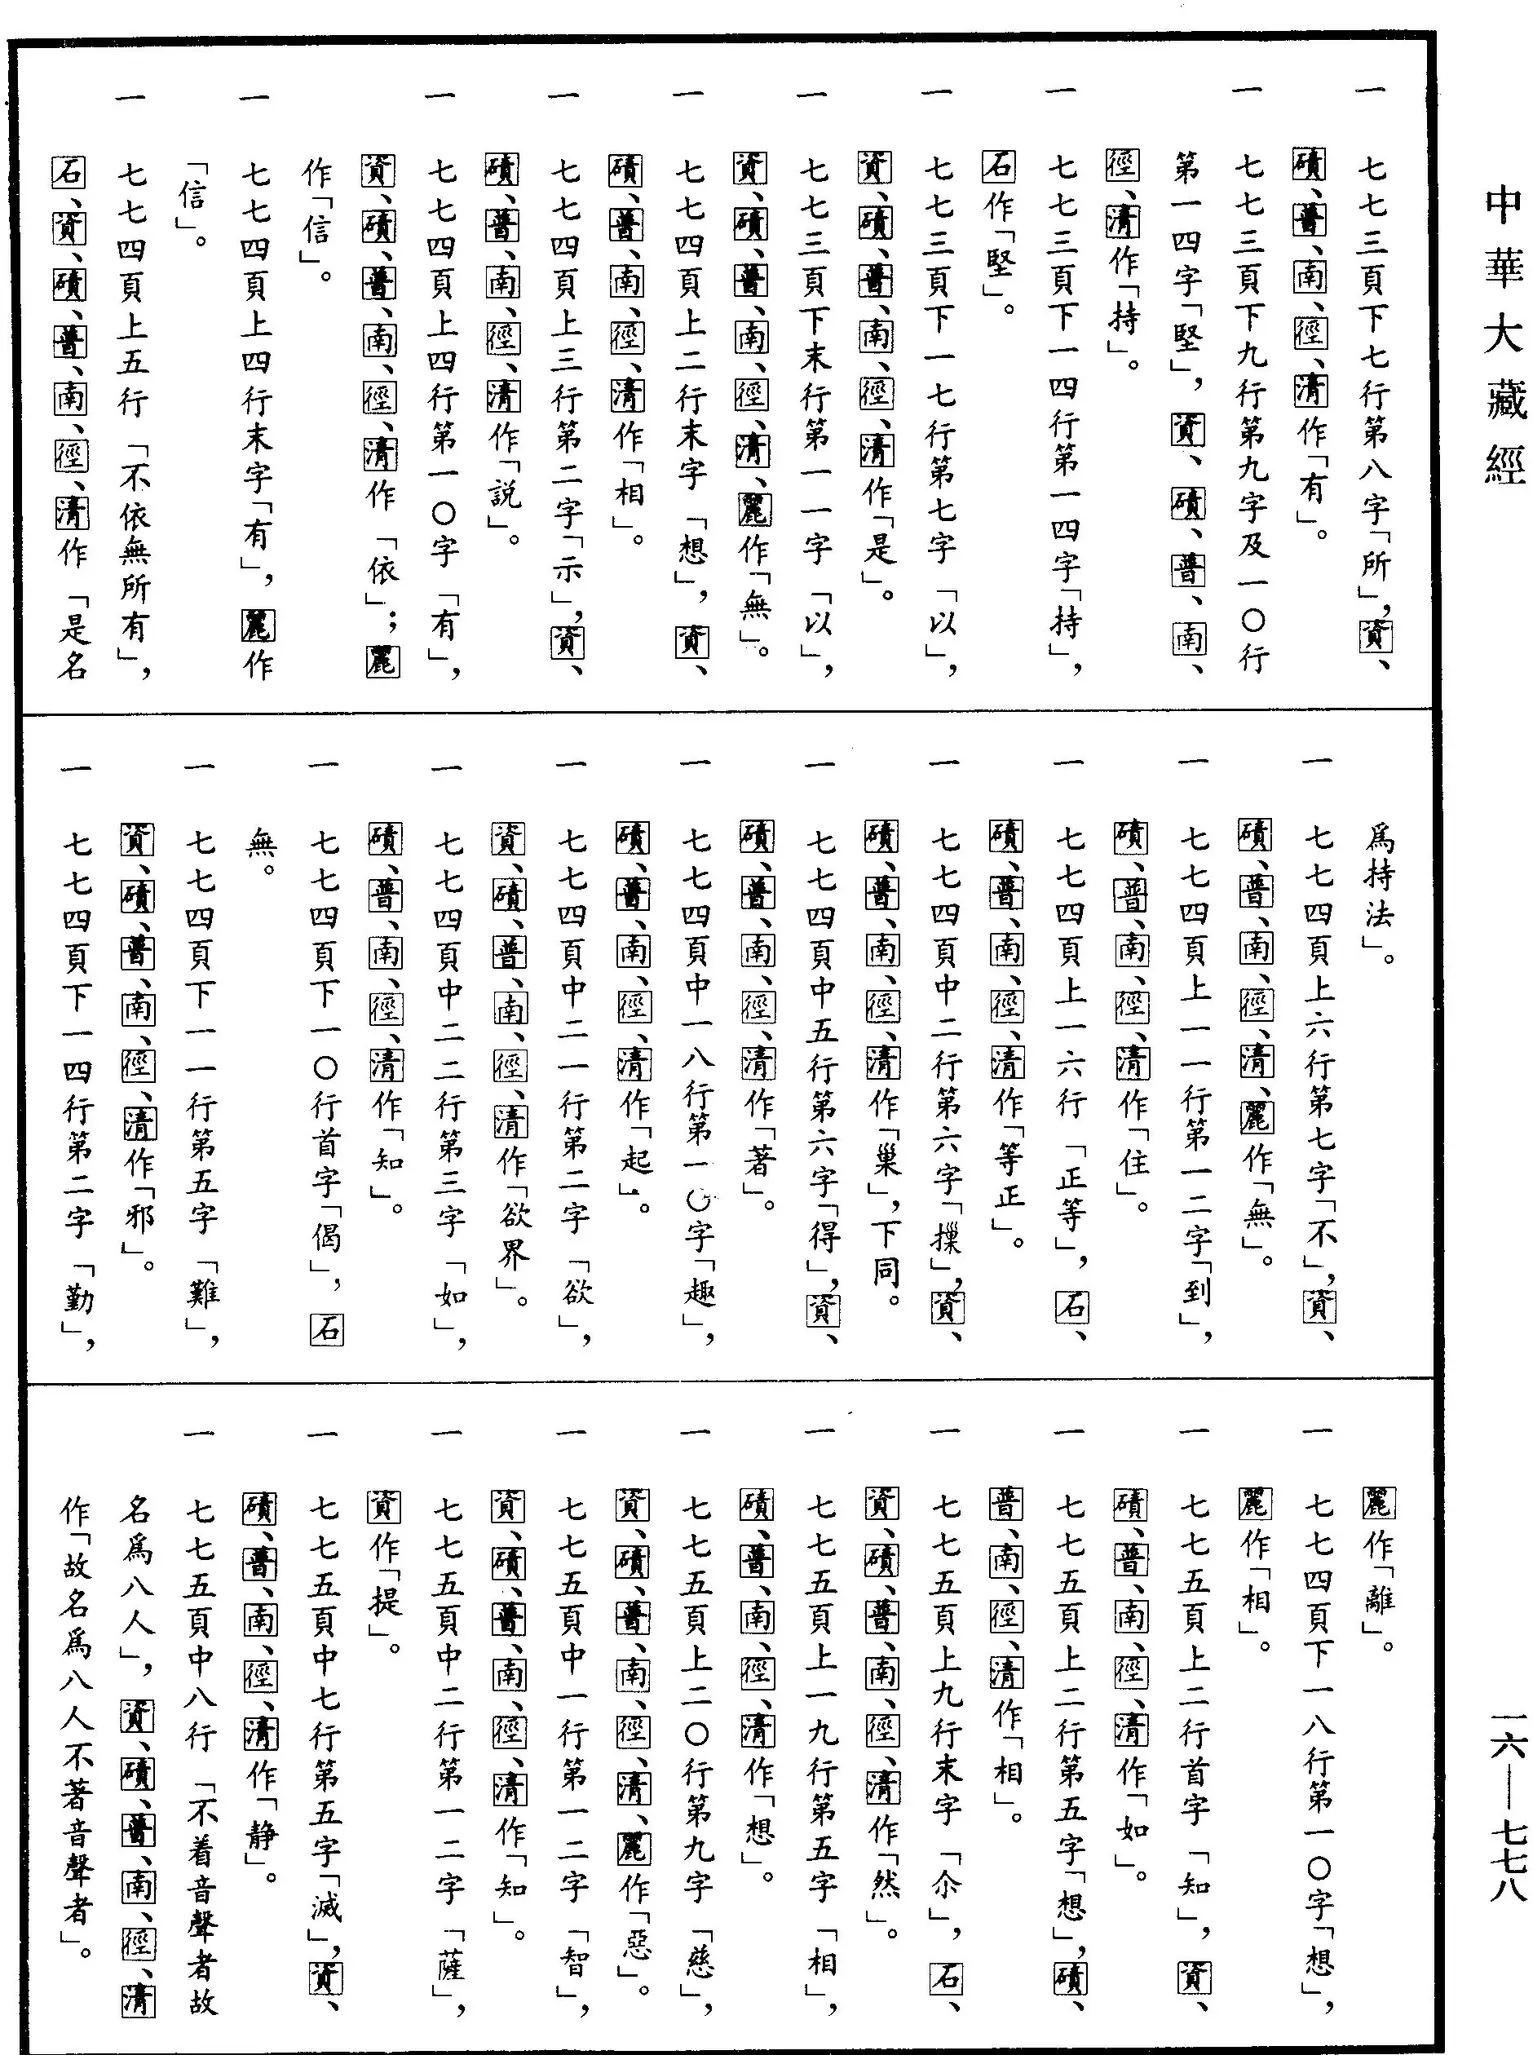 中華大藏經
一　七七三頁下七行第八字「所」，資、
磧、普、南、徑、清作「有」。
一　七七三頁下九行第九字及一〇行
第一四字「堅」，資、磧、普、南、
徑、清作「持」。
一　七七三頁下一四行第一四字「持」，
石作「堅」。
一　七七三頁下一七行第七字「以」，
資、磧、普、南、徑、清作「是」。
一　七七三頁下末行第一一字「以」，
資、磧、普、南、徑、清、麗作「無」。
一　七七四頁上二行末字「想」，資、
磧、普、南、徑、清作「相」。
一　七七四頁上三行第二字「示」，資、
磧、普、南、徑、清作「説」。
一　七七四頁上四行第一〇字「有」，
資、磧、普、南、徑、清作「依」；麗
作「信」。
一　七七四頁上四行末字「有」，麗作
「信」。
一　七七四頁上五行「不依無所有」，
石、資、磧、普、南、徑、清作「是名
爲持法」。
一　七七四頁上六行第七字「不」，資、
磧、普、南、徑、清、麗作「無」。
一　七七四頁上一一行第一二字「到」，
磧、普、南、徑、清作「住」。
一　七七四頁上一六行「正等」，石、
磧、普、南、徑、清作「等正」。
一　七七四頁中二行第六字「摷」，資、
磧、普、南、徑、清作「巢」，下同。
一　七七四頁中五行第六字「得」，資、
磧、普、南、徑、清作「著」。
一　七七四頁中一八行第一〇字「趣」，
磧、普、南、徑、清作「起」。
一　七七四頁中二一行第二字「欲」，
資、磧、普、南、徑、清作「欲界」。
一　七七四頁中二二行第三字「如」，
磧、普、南、徑、清作「知」。
一　七七四頁下一〇行首字「偈」，石
無。
一　七七四頁下一一行第五字「難」，
資、磧、普、南、徑、清作「邪」。
一　七七四頁下一四行第二字「勤」，
麗作「離」。
一　七七四頁下一八行第一〇字「想」，
麗作「相」。
一　七七五頁上二行首字「知」，資、
磧、普、南、徑、清作「如」。
一　七七五頁上二行第五字「想」，磧、
普、南、徑、清作「相」。
一　七七五頁上九行末字「尒」，石、
資、磧、普、南、徑、清作「然」。
一　七七五頁上一九行第五字「相」，
磧、普、南、徑、清作「想」。
一　七七五頁上二〇行第九字「慈」，
資、磧、普、南、徑、清、麗作「惡」。
一　七七五頁中一行第一二字「智」，
資、磧、普、南、徑、清作「知」。
一　七七五頁中二行第一二字「薩」，
資作「提」。
一　七七五頁中七行第五字「滅」，資、
磧、普、南、徑、清作「静」。
一　七七五頁中八行「不着音聲者故
名爲八人」，資、磧、普、南、徑、清
作「故名爲八人不著音聲者」。
一六—七七八